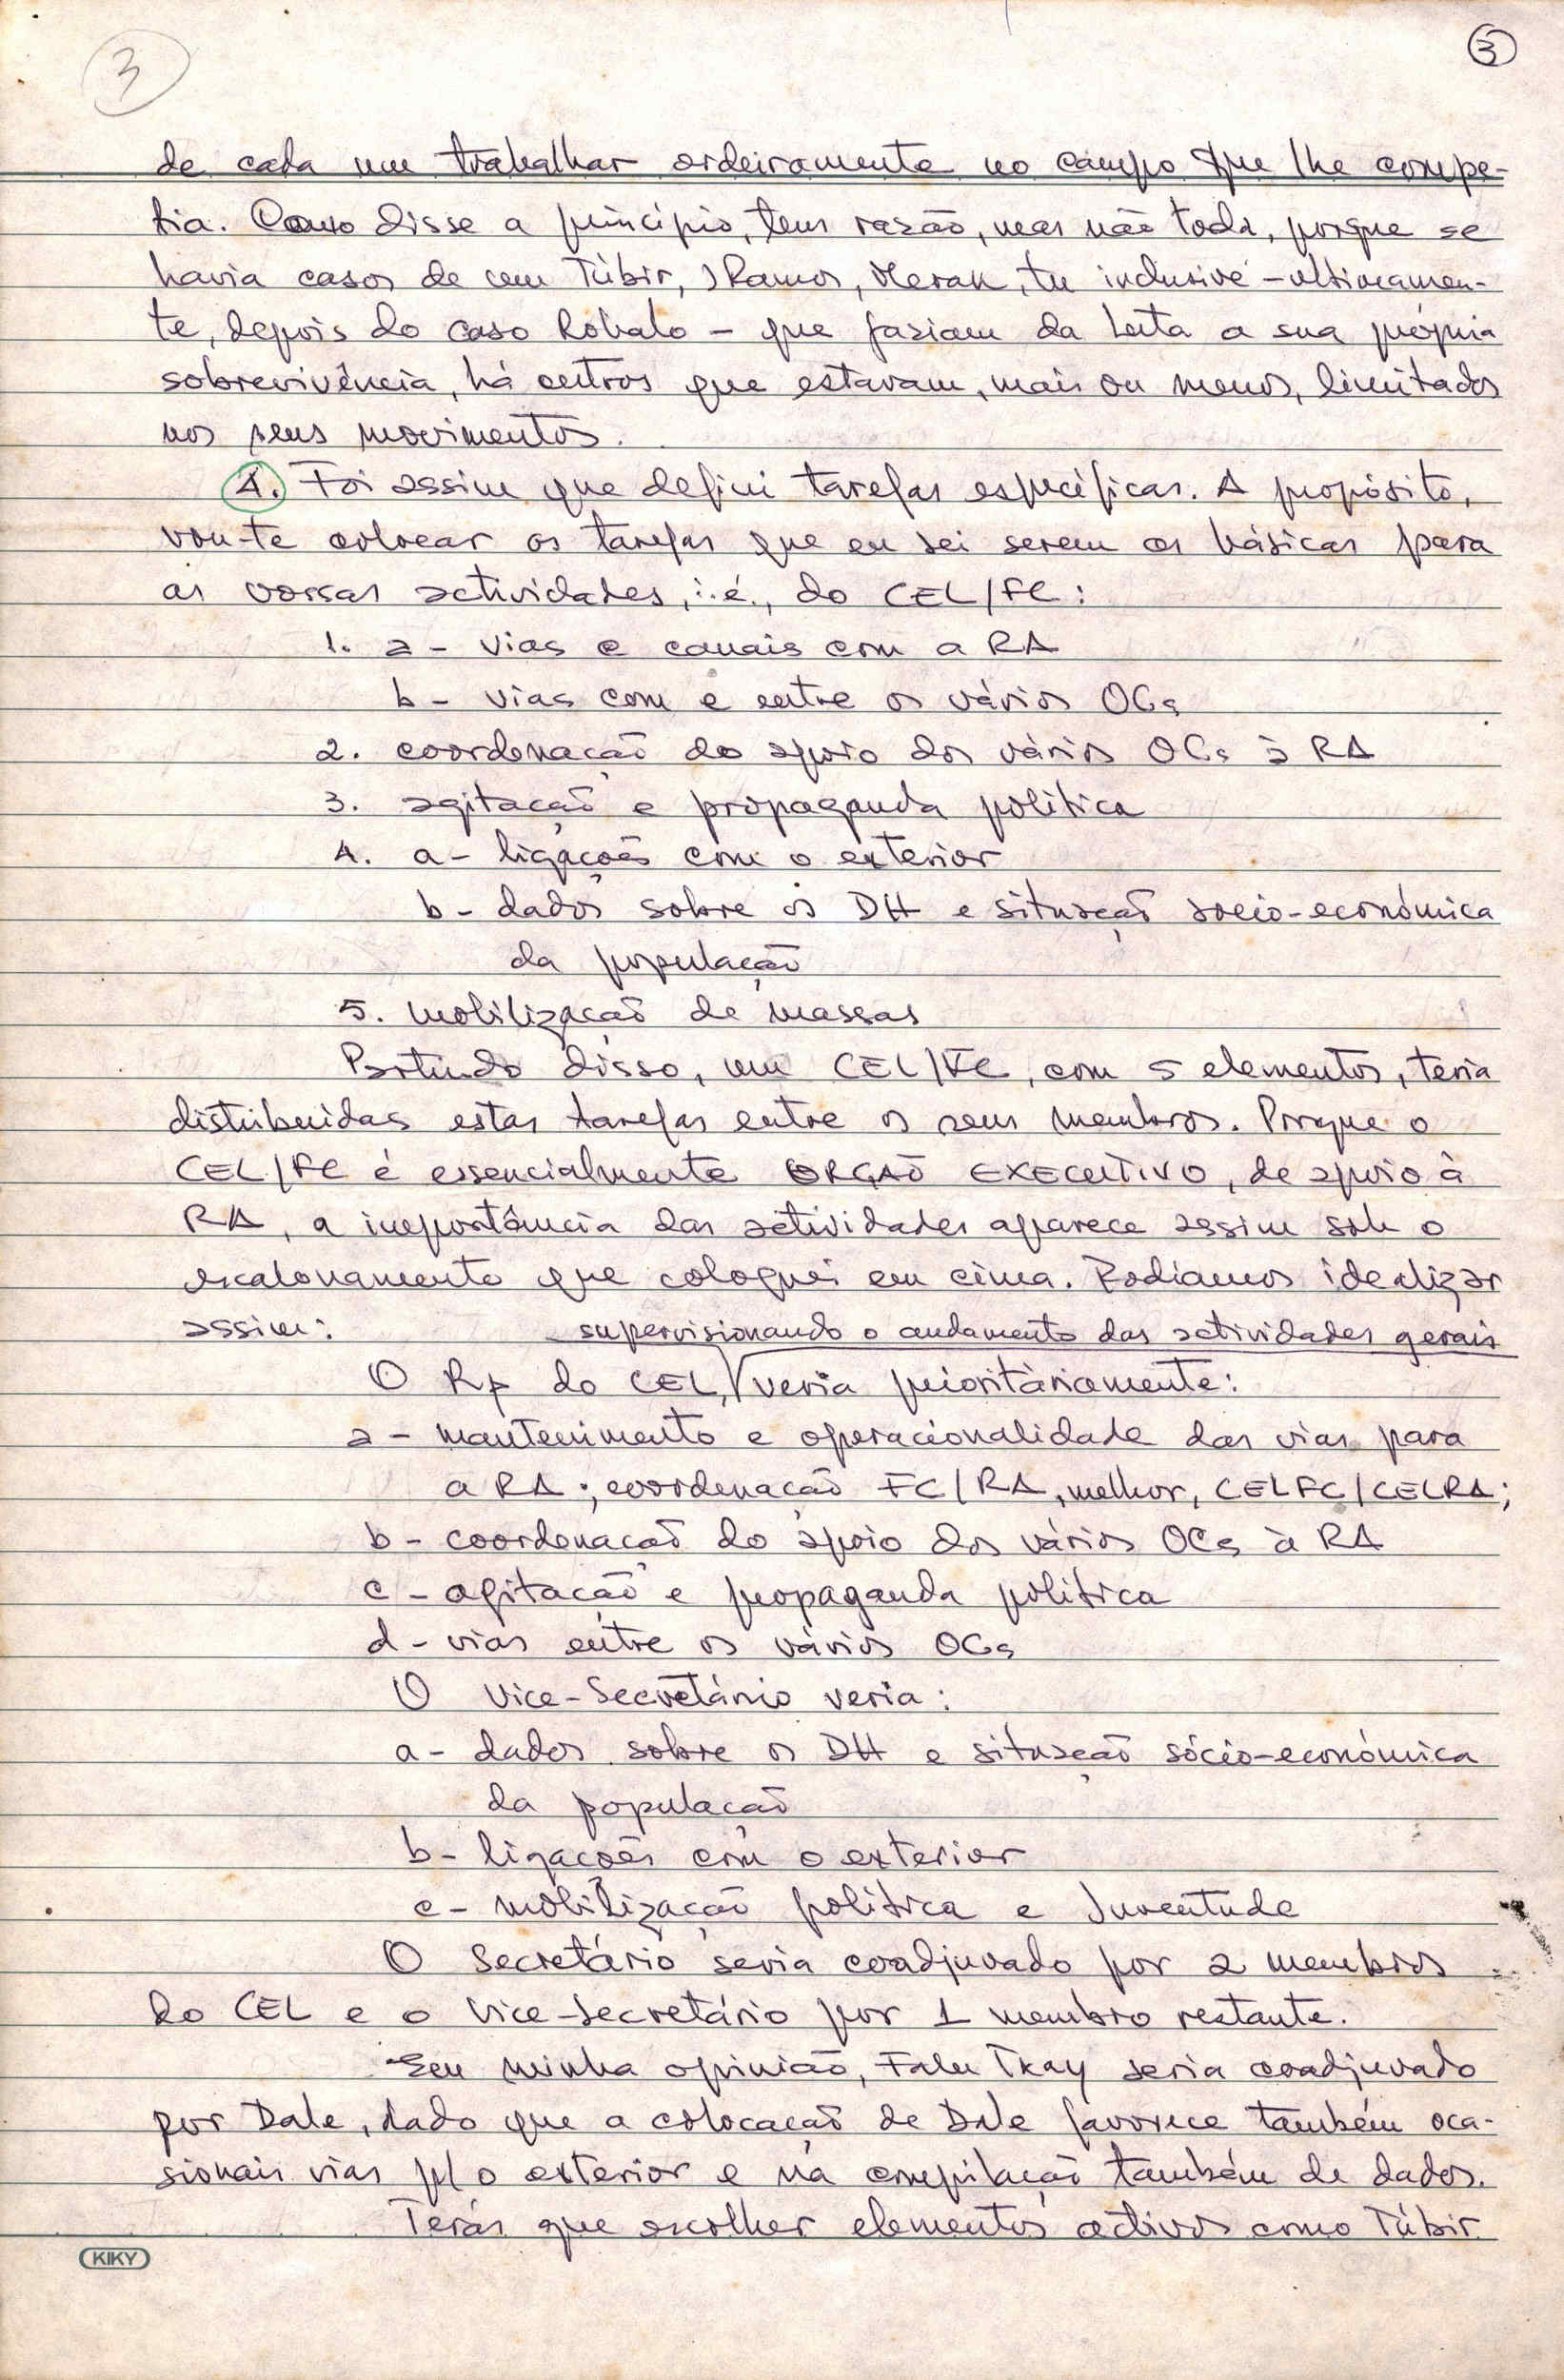 3
3
de cada um trabalhar ordeiramente no campo que lhe compe-
tia. Como disse a princípio, tens razão, mas não toda, porque se
havia casos de um Túbir, J Ramos, Merak, tu inclusivé - ultimamen-
te, depois do caso Robalo - que faziam da Luta a sua própria
sobrevivência, há outros que estavam, mais ou menos, limitados
nos seus movimentos.
4. Foi assim que defini tarefas específicas. A propósito,
vou-te colocar as tarefas que eu sei serem as básicas para
as vossas actividades, i.é., do CEL/FC:
1. a - vias e canais com a RA
b - vias com e entre os vários OCs
2. coordenação do apoio dos vários OCs à RA
3. agitação e propaganda política
4. a - ligações com o exterior
b - dados sobre os DH e situação socio-económica
da população
5. mobilização de massas
Partindo disso, um CEL/FC, com 5 elementos, teria
distribuidas estas tarefas entre os seus membros. Porque o
CEL/FC é essencialmente ORGÃO EXECUTIVO, de apoio à
RA, a importância das actividades aparece assim sob o
escalonamento que coloquei em cima. Podiamos idealizar
assim:
supervisionando o andamento das actividades gerais
O Rp do CEL, veria prioritàriamente:
a - mantenimento e operacionalidade das vias para
a RA; coordenação FC/RA, melhor, CELFC/CELRA;
b - coordenação do apoio dos vários OCs à RA
c - agitação e propaganda política
d - vias entre os vários OCs
O Vice-Secretário veria:
a - dados sobre os DH e situação sócio-económica
da população
b - ligações com o exterior
c - mobilização política e Juventude
O Secretário seria coadjuvado por 2 membros
do CEL e o Vice-Secretário por 1 membro restante.
Em minha opinião, Falu Tkay seria coadjuvado
por Dale, dado que a colocação de Dale favorece também oca-
sionais vias p/ o exterior e na compilação também de dados.
Terás que escolher elementos activos como Túbir
KIKY